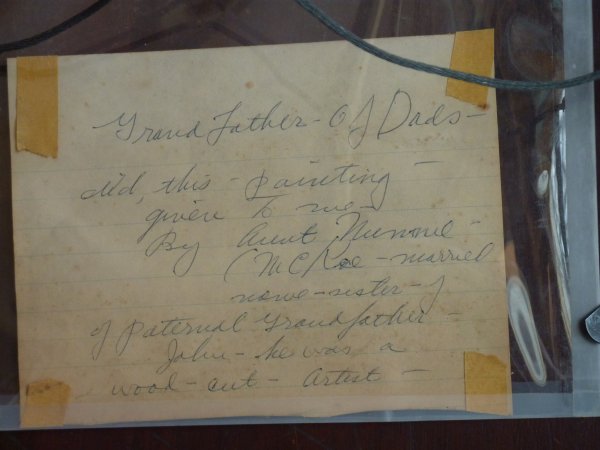 Grand Father - Of Dads -
did, this - painting -
given to me -
By Aunt Nummie -
(McKee - married
name - sister - of
of paternal Grandfather -
John - he was a
wood - cut - artist -